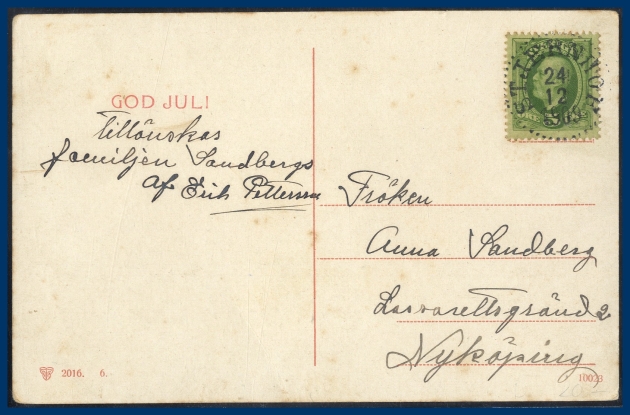 GOD JUL!
Tillönskas
familjen Sandbergs
af Erik Pettersson
Fröken
Anna Sandberg
Lasarettsgränd 2
Nyköping
24
12
2016. 6.
10023